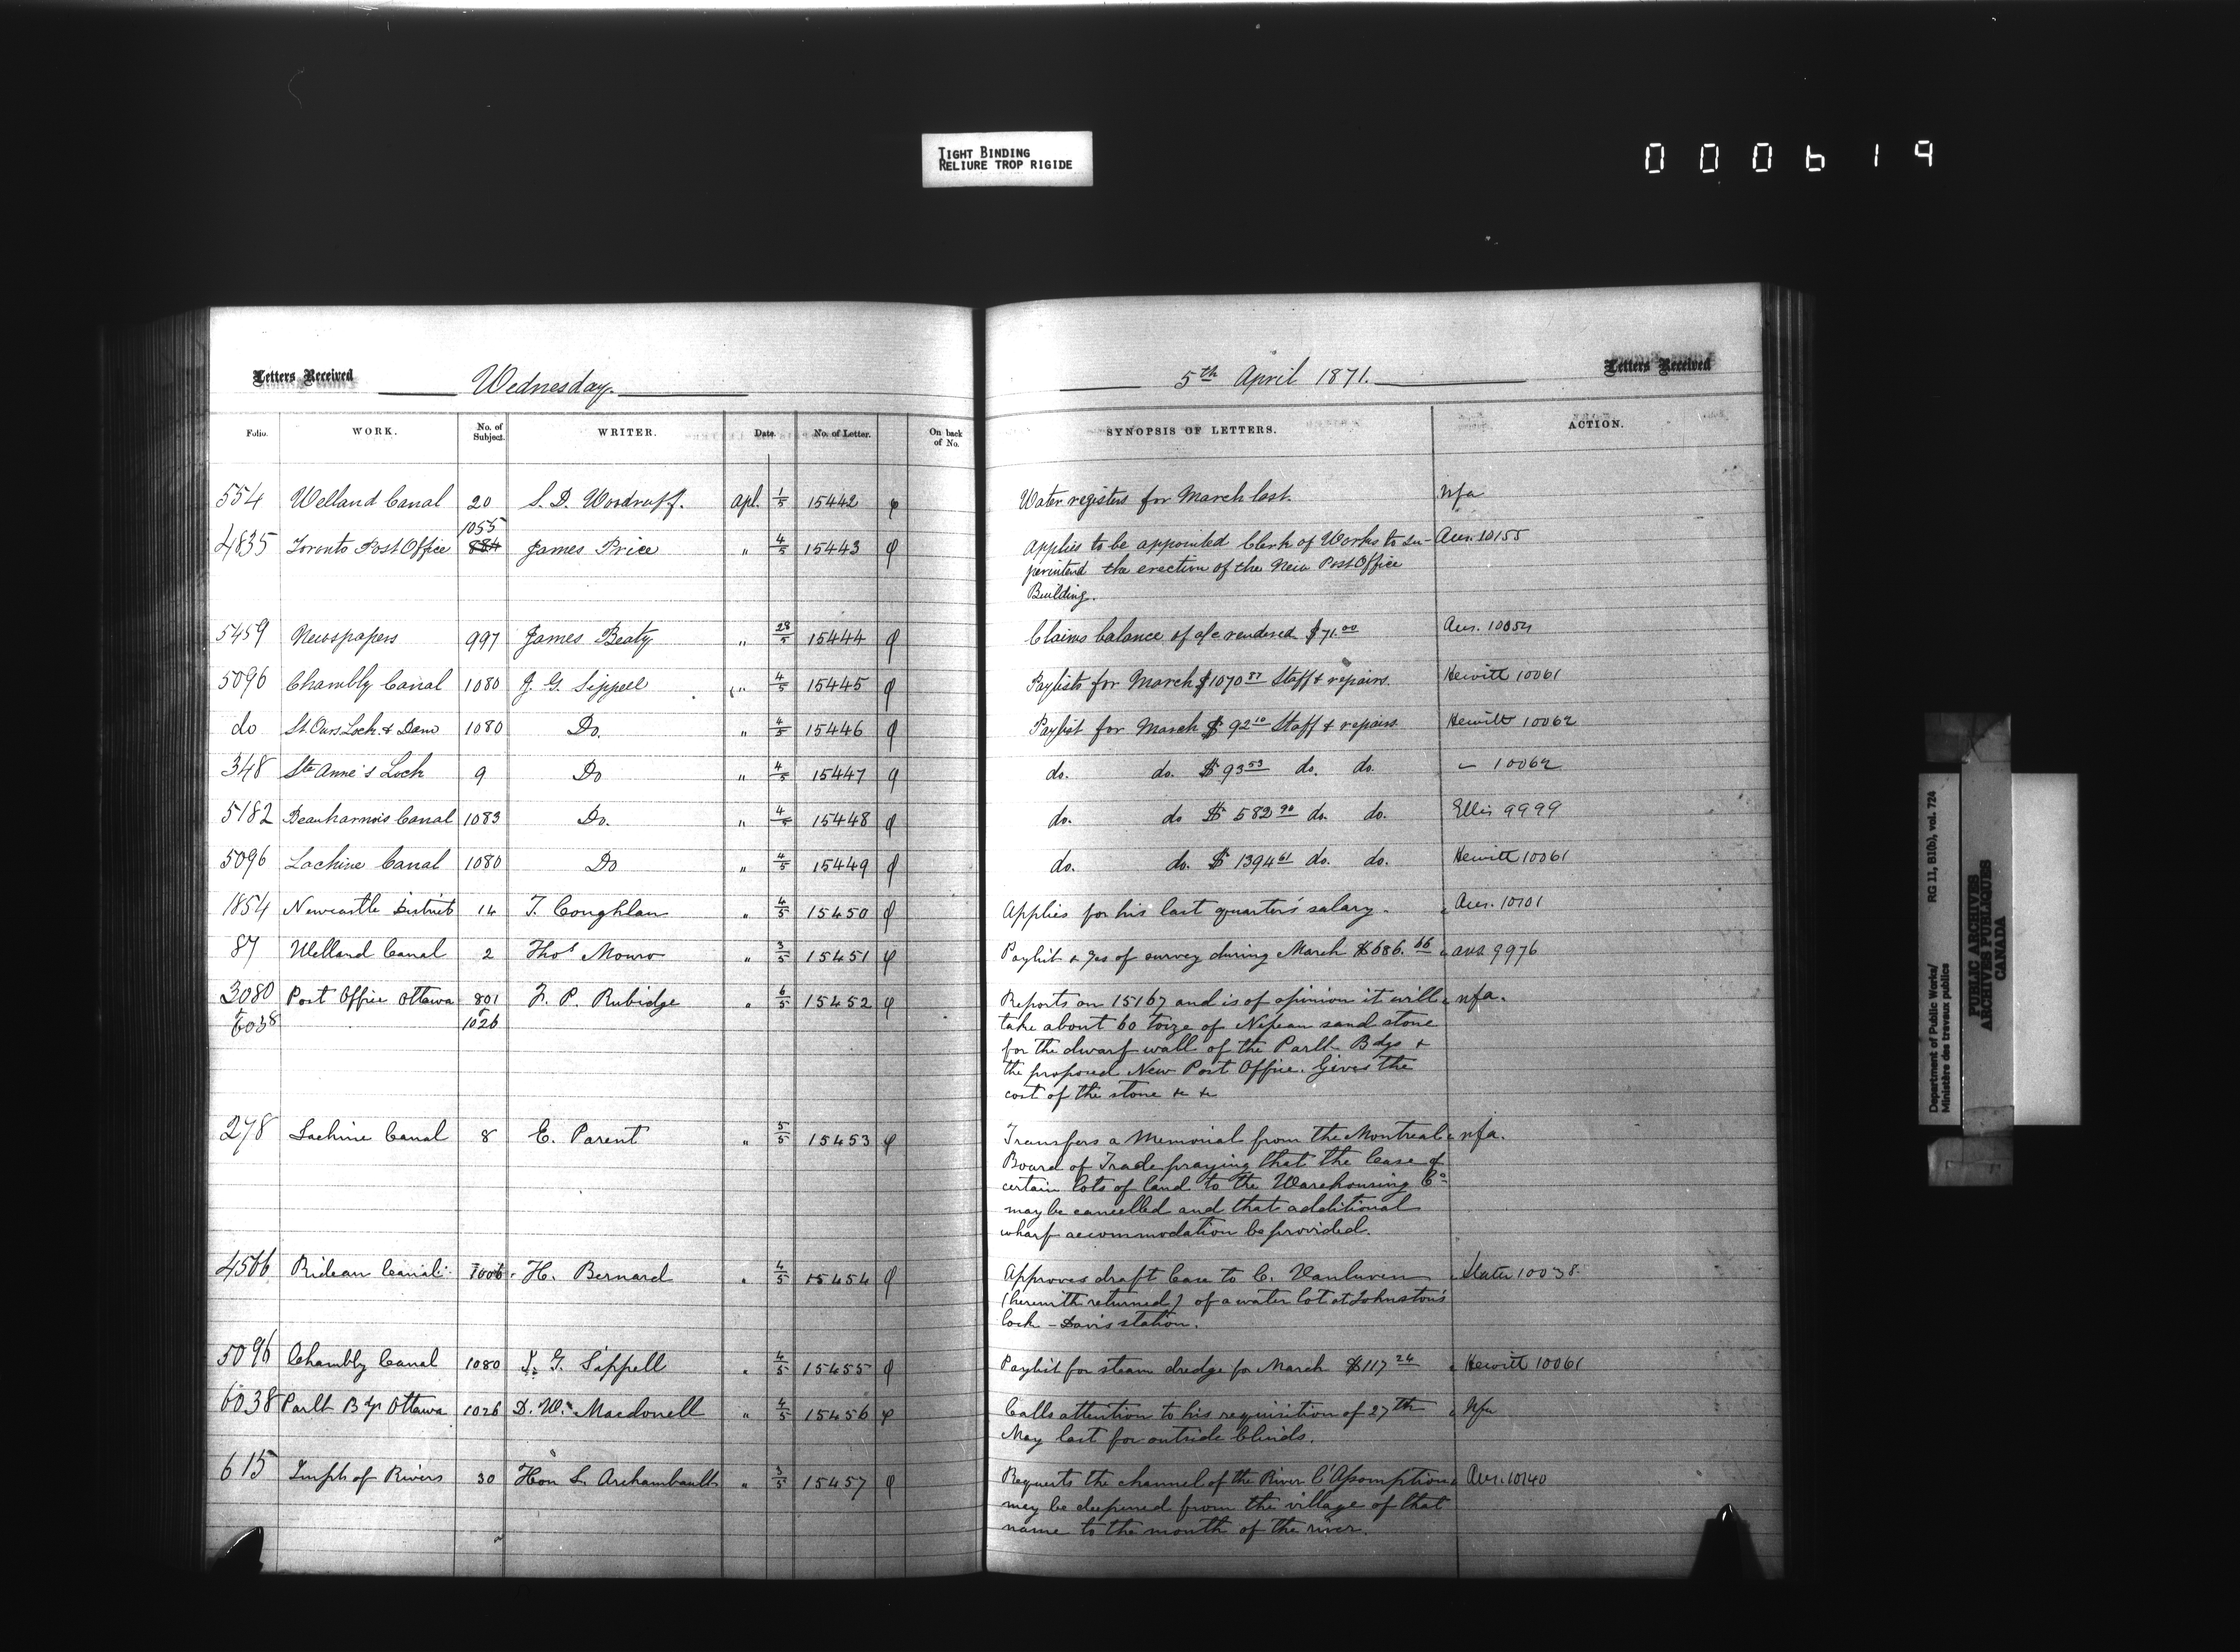 TIGHT BINDING
RELIURE TROP RIGIDE
000619
Letters Received
Wednesday.
5th April 1871.
Letters Received
Folio. WORK. No. of Subject. WRITER. Date. No. of Letter. On back of No. SYNOPSIS OF LETTERS. ACTION.
554 Welland Canal 20 S. D. Woodruff. Apl. 1/5 15442 φ Water registers for March last. nfa
1055
4835 Toronto Post Office 884 James Price " 4/5 15443 φ Applies to be appointed Clerk of Works to su- Ans. 10155
perintend the erection of the New Post Office
Building.
5459 Newspapers 997 James Beaty " 28/5 15444 φ Claims balance of a/c rendered $71.00 Ans. 10054
5096 Chambly Canal 1080 J. G. Sippell " 4/5 15445 φ Paylists for March $1070 87 Staff & repairs. Hewitt 10061
do St. Ours Lock & Dam 1080 Do. " 4/5 15446 φ Paylist for March $ 92 10 Staff & repairs Hewitt 10062
348 Ste Anne's Lock 9 Do " 4/5 15447 φ do. do. $ 93 53 do. do. " 10062
5182 Beauharnois Canal 1083 Do. " 4/5 15448 φ do. do $ 582 90 do. do. Ellis 9999
5096 Lachine Canal 1080 Do " 4/5 15449 φ do. do. $ 1394 61 do. do. Hewitt 10061
1854 Newcastle District 14 T. Coughlan " 4/5 15450 φ Applies for his last quarter's salary. Ans. 10101
87 Welland Canal 2 Thos Monro " 3/5 15451 φ Paylist & of survey during March $686. 66 ans 9976
3080 Post Office Ottawa 801 F. P. Rubidge " 6/5 15452 φ Reports on 15167 and is of opinion it will nfa.
& 6038 & 1026 take about 60 toize of Nepean sand stone
for the dwarf wall of the Parlt Bdgs &
the proposed New Post Office. Gives the
cost of the stone &c &c
278 Lachine Canal 8 E. Parent " 5/5 15453 φ Transfers a Memorial from the Montreal nfa.
Board of Trade praying that the lease of
certain lots of land to the Warehousing Co
may be cancelled and that additional
wharf accommodation be provided.
4566 Rideau Canal 1006 H. Bernard " 4/5 15454 φ Approves draft lease to C. Vanluven Slater 10038
(herewith returned) of a water lot at Johnston's
lock - Davis station.
5096 Chambly Canal 1080 J. G. Sippell " 4/5 15455 φ Paylist for steam dredge for March $117 24 Hewitt 10061
6038 Parlt Bdgs Ottawa 1026 D. W. Macdonell " 4/5 15456 φ Calls attention to his requisition of 27th Nfa
May last for outside blinds.
615 Impts of Rivers 30 Hon L. Archambault " 3/5 15457 φ Requests the channel of the River l'Assomption Ans. 10140
may be deepened from the village of that
name to the mouth of the river.
Department of Public Works/ RG 11, B1(b), vol. 724
Ministère des travaux publics
PUBLIC ARCHIVES
ARCHIVES PUBLIQUES
CANADA